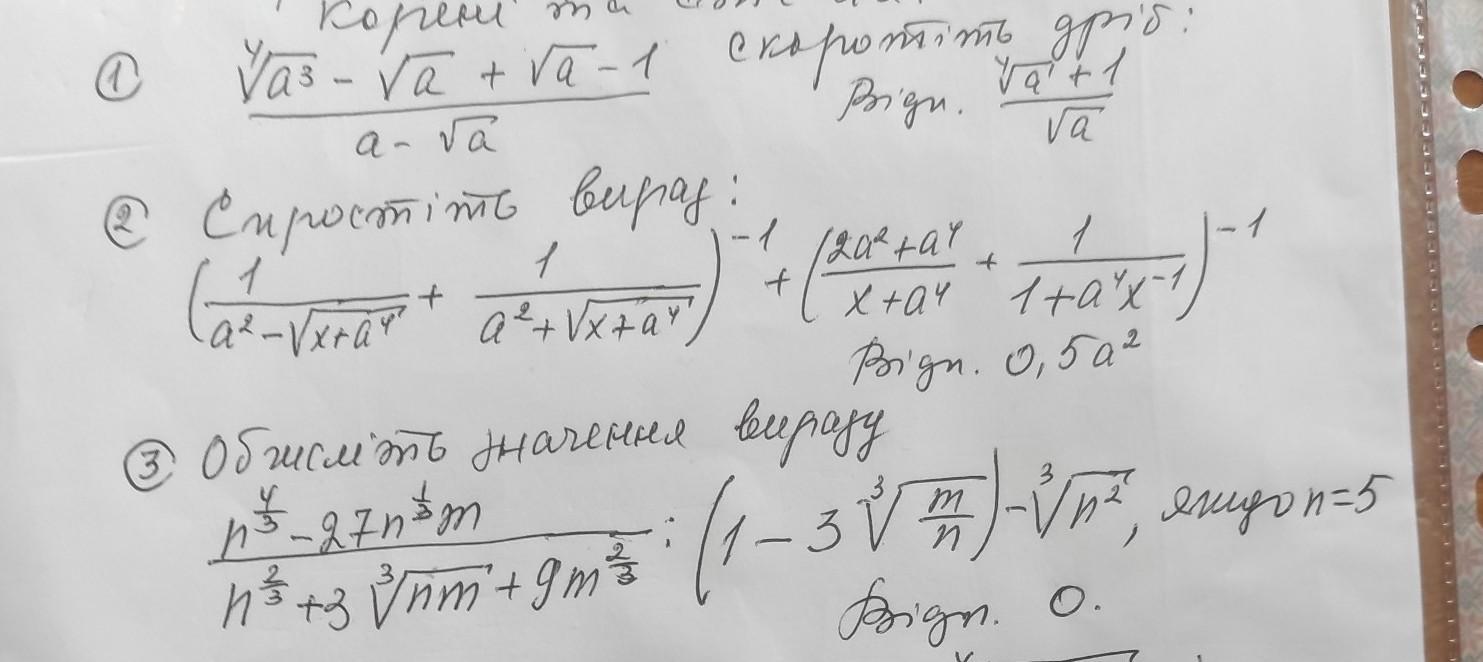 корені та
① (\sqrt[4]{a^3} - \sqrt{a} + \sqrt{a} - 1)/(a - \sqrt{a}) скоротіть дріб:
Відп. (\sqrt[4]{a} + 1)/\sqrt{a}
② Спростіть вираз:
(1/(a^2 - \sqrt{x+a^4}) + 1/(a^2 + \sqrt{x+a^4}))^{-1} + ((2a^2+a^4)/(x+a^4) + 1/(1+a^4x^{-1}))^{-1}
Відп. 0,5a^2
③ Обчисліть значення виразу
(n^{4/3} - 27n^{1/3}m)/(n^{2/3} + 3\sqrt[3]{nm} + 9m^{2/3}) : (1 - 3\sqrt[3]{m/n}) - \sqrt[3]{n^2}, якщо n=5
Відп. 0.